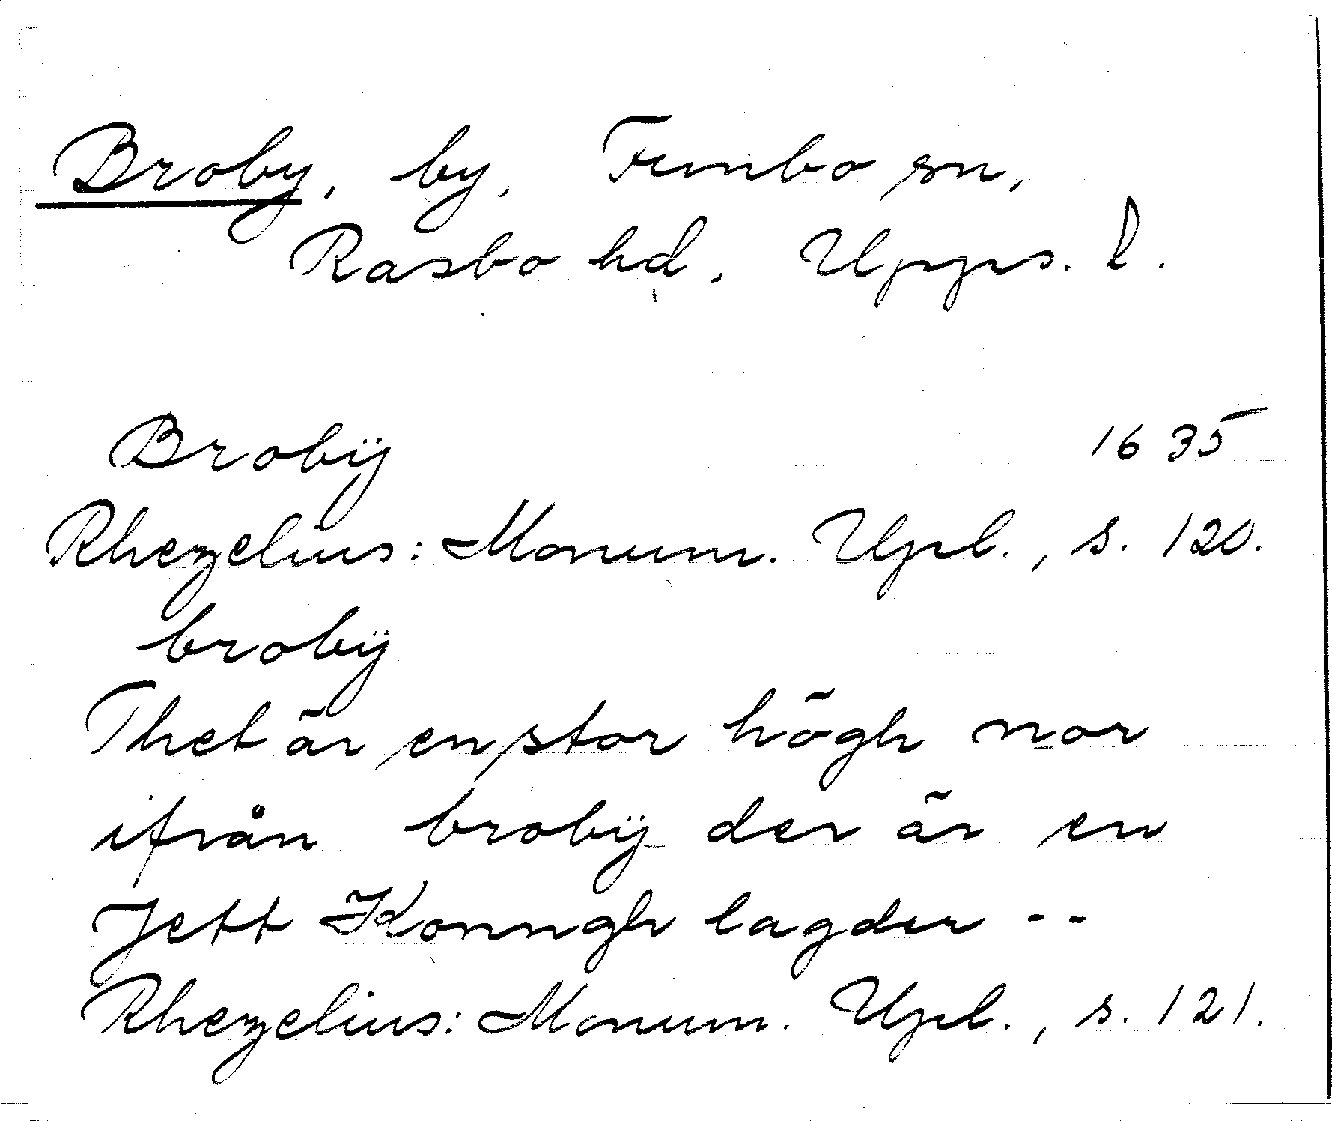 Broby, by, Funbo sn,
Rasbo hd, Upps. l.
Brobÿ 1635
Rhezelius: Monum. Upl., s. 120.
brobÿ
Thet är en stor högh nor
ifrån brobÿ der är en
Jett Konngh lagder --
Rhezelius: Monum. Upl., s. 121.